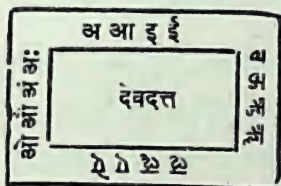 अ आ इ ई
उ ऊ ऋ ॠ
देवदत्त
ऌ ॡ ए ऐ
ओ औ अं अः